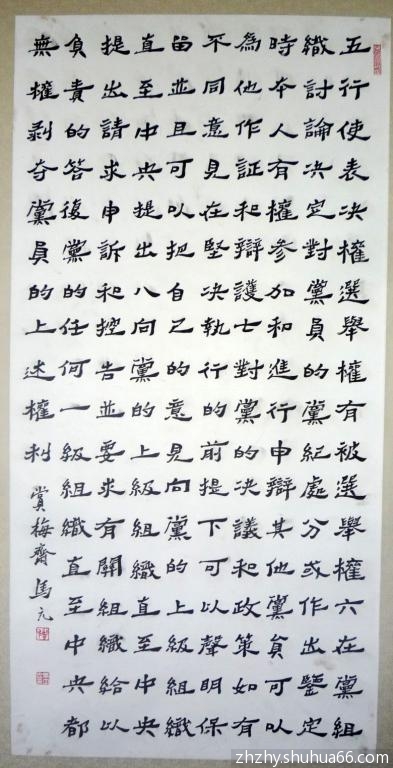 五行使表决權選舉權有被選舉權六在黨組
織討論决定對黨員的黨紀處分或作出鑒定
時本人有權參加和進行申辯其他黨員可以
為他作証和辯護七對黨的决議和政策如有
不同意見在堅决執行的前提下可以聲明保
畱並且可以把自己的意見向黨的上級組織
直至中央提出八向黨的上級組織直至中央
提出請求申訴和控告並要求有關組織給以
負責的答復黨的任何一級組織直至中央都
無權剥夺黨員的上述權利
賞梅齋馬元
zhzhy.shuhua66.com